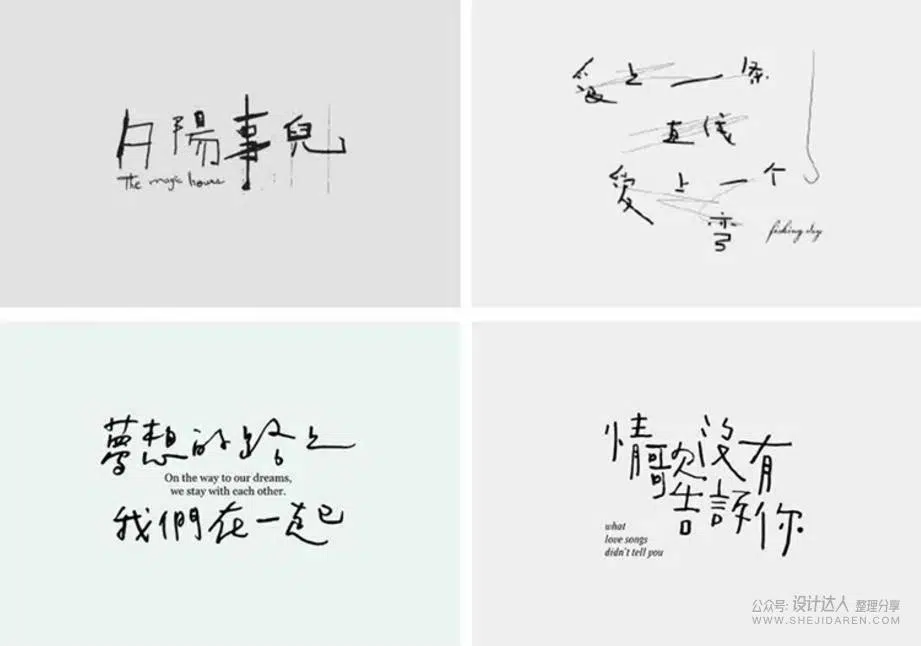 夕陽事兒
The magic hour
愛上一条
直线
愛上一个
弯
fishing day
夢想的路上
On the way to our dreams,
we stay with each other.
我們在一起
情歌沒有
告訴你
what
love songs
didn't tell you
公众号: 设计达人 整理分享
WWW.SHEJIDAREN.COM